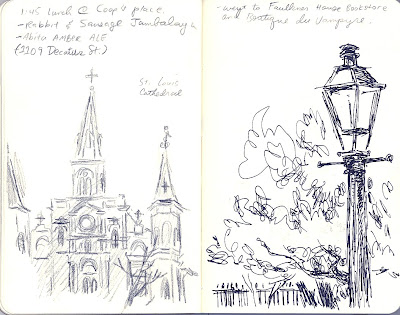 1:45 Lunch @ Coop's place.
- Rabbit & Sausage Jambalaya
- Abita AMBER ALE
(1109 Decatur St.)
St. Louis
Cathedral
- went to Faulkner House Bookstore
and Boutique du Vampyre.